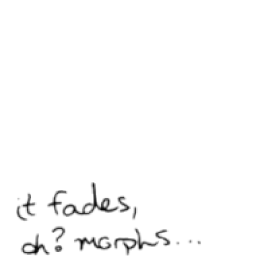 it fades,
oh? morphs...